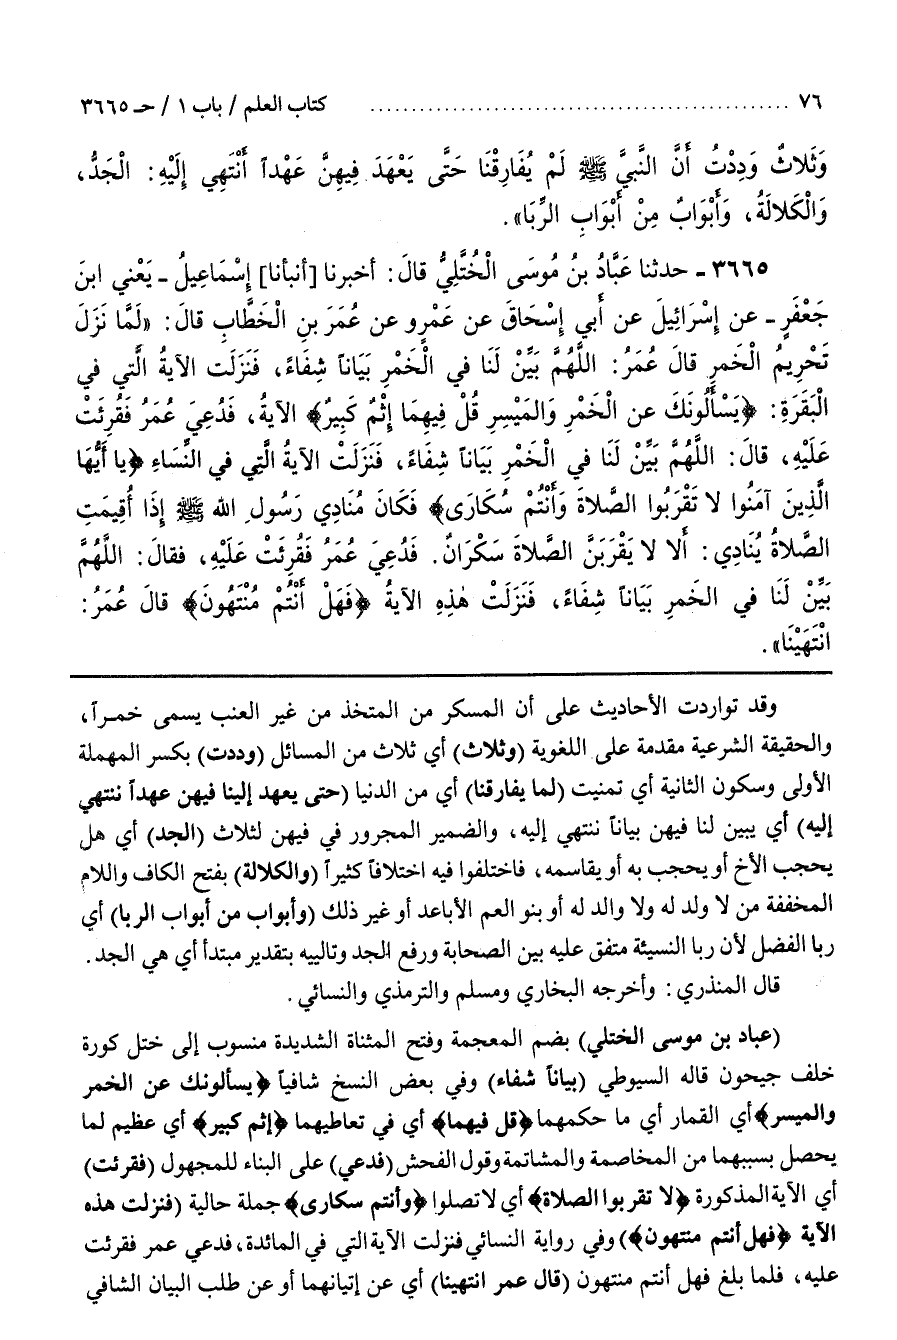 ٧٦ ........................................ كتاب العلم / باب ١ / حـ ٣٦٦٥
وَثَلاثٌ وَدِدْتُ أَنَّ النَّبِيَّ ﷺ لَمْ يُفَارِقْنَا حَتَّى يَعْهَدَ فِيهِنَّ عَهْداً أَنْتَهِي إِلَيْهِ: الْجَدُّ،
وَالْكَلالَةُ، وَأَبْوَابٌ مِنْ أَبْوَابِ الرِّبَا».
٣٦٦٥ ـ حدثنا عَبَّادُ بنُ مُوسَى الْخُتَّلِيُّ قالَ: أخبرنا [أنبأنا] إِسْمَاعِيلُ ـ يَعْني ابنَ
جَعْفَرٍ ـ عن إِسْرَائِيلَ عن أَبي إِسْحَاقَ عن عَمْرٍو عن عُمَرَ بنِ الْخَطَّابِ قالَ: «لَمَّا نَزَلَ
تَحْرِيمُ الْخَمرِ قالَ عُمَرُ: اللَّهُمَّ بَيِّنْ لَنَا في الْخَمْرِ بَيَاناً شِفَاءً، فَنَزَلَت الآيَةُ الَّتي في
الْبَقَرَةِ: ﴿يَسْأَلُونَكَ عن الْخَمْرِ وَالمَيْسِرِ قُلْ فِيهِمَا إِثْمٌ كَبِيرٌ﴾ الآيةُ، فَدُعِيَ عُمَرُ فَقُرِئَتْ
عَلَيْهِ، قالَ: اللَّهُمَّ بَيِّنْ لَنَا في الْخَمْرِ بَيَاناً شِفَاءً، فَنَزَلَتْ الآيَةُ الَّتِي في النِّسَاءِ ﴿يا أَيُّهَا
الَّذِينَ آمَنُوا لا تَقْرَبُوا الصَّلاةَ وَأَنْتُمْ سُكَارَى﴾ فَكَانَ مُنَادِي رَسُولِ الله ﷺ إِذَا أُقِيمَتِ
الصَّلاةُ يُنَادِي: أَلا لا يَقْرَبَنَّ الصَّلاةَ سَكْرَانٌ. فَدُعِيَ عُمَرُ فَقُرِئَتْ عَلَيْهِ، فقالَ: اللَّهُمَّ
بَيِّنْ لَنَا في الخَمرِ بَيَاناً شِفَاءً، فَنَزَلَتْ هٰذِهِ الآيَةُ ﴿فَهَلْ أَنْتُمْ مُنْتَهُونَ﴾ قالَ عُمَرُ:
انْتَهَيْنَا».
وقد تواردت الأحاديث على أن المسكر من المتخذ من غير العنب يسمى خمراً،
والحقيقة الشرعية مقدمة على اللغوية (وثلاث) أي ثلاث من المسائل (وددت) بكسر المهملة
الأولى وسكون الثانية أي تمنيت (لما يفارقنا) أي من الدنيا (حتى يعهد إلينا فيهن عهداً ننتهي
إليه) أي يبين لنا فيهن بياناً ننتهي إليه، والضمير المجرور في فيهن لثلاث (الجد) أي هل
يحجب الأخ أو يحجب به أو يقاسمه، فاختلفوا فيه اختلافاً كثيراً (والكلالة) بفتح الكاف واللام
المخففة من لا ولد له ولا والد له أو بنو العم الأباعد أو غير ذلك (وأبواب من أبواب الربا) أي
ربا الفضل لأن ربا النسيئة متفق عليه بين الصحابة ورفع الجد وتالييه بتقدير مبتدأ أي هي الجد.
قال المنذري: وأخرجه البخاري ومسلم والترمذي والنسائي.
(عباد بن موسى الختلي) بضم المعجمة وفتح المثناة الشديدة منسوب إلى ختل كورة
خلف جيحون قاله السيوطي (بياناً شفاء) وفي بعض النسخ شافياً ﴿يسألونك عن الخمر
والميسر﴾ أي القمار أي ما حكمهما ﴿قل فيهما﴾ أي في تعاطيهما ﴿إثم كبير﴾ أي عظيم لما
يحصل بسببهما من المخاصمة والمشاتمة وقول الفحش (فدعي) على البناء للمجهول (فقرئت)
أي الآية المذكورة ﴿لا تقربوا الصلاة﴾ أي لا تصلوا ﴿وأنتم سكارى﴾ جملة حالية (فنزلت هذه
الآية ﴿فهل أنتم منتهون﴾) وفي رواية النسائي فنزلت الآية التي في المائدة، فدعي عمر فقرئت
عليه، فلما بلغ فهل أنتم منتهون (قال عمر انتهينا) أي عن إتيانهما أو عن طلب البيان الشافي